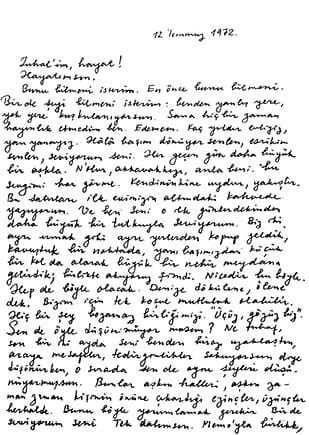 12 Temmuz 1972.
Zuhal'ım, hayat!
Hayatımsın.
Bunu bilmeni isterim. En önce bunu bilmeni.
Bir de şeyi bilmeni isterim: benden yanlış yere,
yok yere kuşkulanıyorsun. Sana hiçbir zaman
hayınlık etmedim ben. Edemem. Kaç yıldır evliyiz,
yan yanayız. Hâlâ başım dönüyor senden, esrikim
senden, seviyorum seni. Her geçen gün daha büyük
bir aşkla. N'olur, anla beni. Bu
sevgimi hor görme. Kendininkine uydur, yakıştır.
Bu satırları ilk evimizin altındaki kahvede
yazıyorum. Ve ben seni o ilk günlerdekinden
daha büyük bir tutkuyla seviyorum. Biz iki
ayrı ırmak gibi ayrı yerlerden kopup geldik,
kavuştuk bir noktada, yanı başımızdan küçük
bir kol da alarak büyük bir nehir meydana
getirdik; birlikte akıyoruz şimdi. Nicedir bu böyle.
Hep de böyle olacak. Denize dökülene, ölene
dek. Bizim için tek koşul mutluluk olabilir.
Hiçbir şey bozamaz birliğimizi. "Üçüz, gözüz biz".
Sen de öyle düşünmüyor musun? Ne tuhaf,
son bir iki ayda seni benden biraz uzaklaştın,
araya mesafeler, tedirginlikler sokuyorsun diye
düşünürken, o sırada sen de aynı şeyleri düşü-
nüyormuşsun. Bunlar aşkın halleri, aşkın za-
man zaman kişinin önüne çıkardığı ezinçler, üzünçler
herhalde. Bunu böyle yorumlamak gerekir. Bir de
seviyorum seni Tek dalımsın. Memo'yla birlikte,